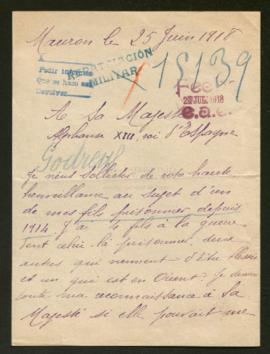 Mauron le 25 Juin 1918
INFORMACIÓN
MILITAR
Pedir informes
Que se ham
15139
Fee
29 JUIL 1918
e.a.e.
A Sa Majesté
Alphonse XIII, roi d'Espagne
Je viens solliciter de votre haute
bienveillance au sujet d'un
de mes fils prisonnier depuis
1914. J'ai 4 fils à la guerre
dont celui là prisonnier, deux
autres qui viennent d'être blessés
et un qui est en Orient. Je
toute ma reconnaissance à Sa
Majesté si elle pouvait me